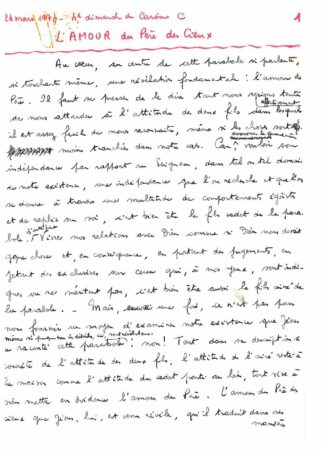 24 mars - 4e dimanche du Carême C 1
L'AMOUR du Père des Cieux
Au cœur, au centre de cette parabole si parlante,
si touchante même, une révélation fondamentale : l'amour du
Père. Il faut se presser de le dire tant nous serions tentés
de nous attarder à l'attitude des deux fils dans lesquels
il est assez facile de nous reconnaître, même si les choses sont
moins tranchées dans notre cas. Car, vouloir son
indépendance par rapport au Seigneur, dans tel ou tel domaine
de notre existence, une indépendance que l'on recherche et que l'on
se donne à travers une multitude de comportements égoïstes
et de replis sur soi, c'est bien être le fils cadet de la para-
bole. Vivre nos relations avec Dieu comme si Dieu nous devait
quelque chose et, en conséquence, en portant des jugements, en
jetant des exclusives sur ceux qui, à nos yeux, sont indi-
gnes ou ne méritent pas, c'est bien être aussi le fils aîné de
la parabole. - Mais, une fois, ce n'est pas pour
nous fournir un moyen d'examiner notre existence que Jésus
a raconté cette parabole : non ! Tout dans sa description si
de l'attitude des deux fils, l'attitude de l'aîné resté à
la maison comme l'attitude du cadet parti au loin, tout vise à
mettre en évidence l'amour du Père. L'amour du Père des
cieux que Jésus, lui, est venu révéler, qu'il traduit dans ses